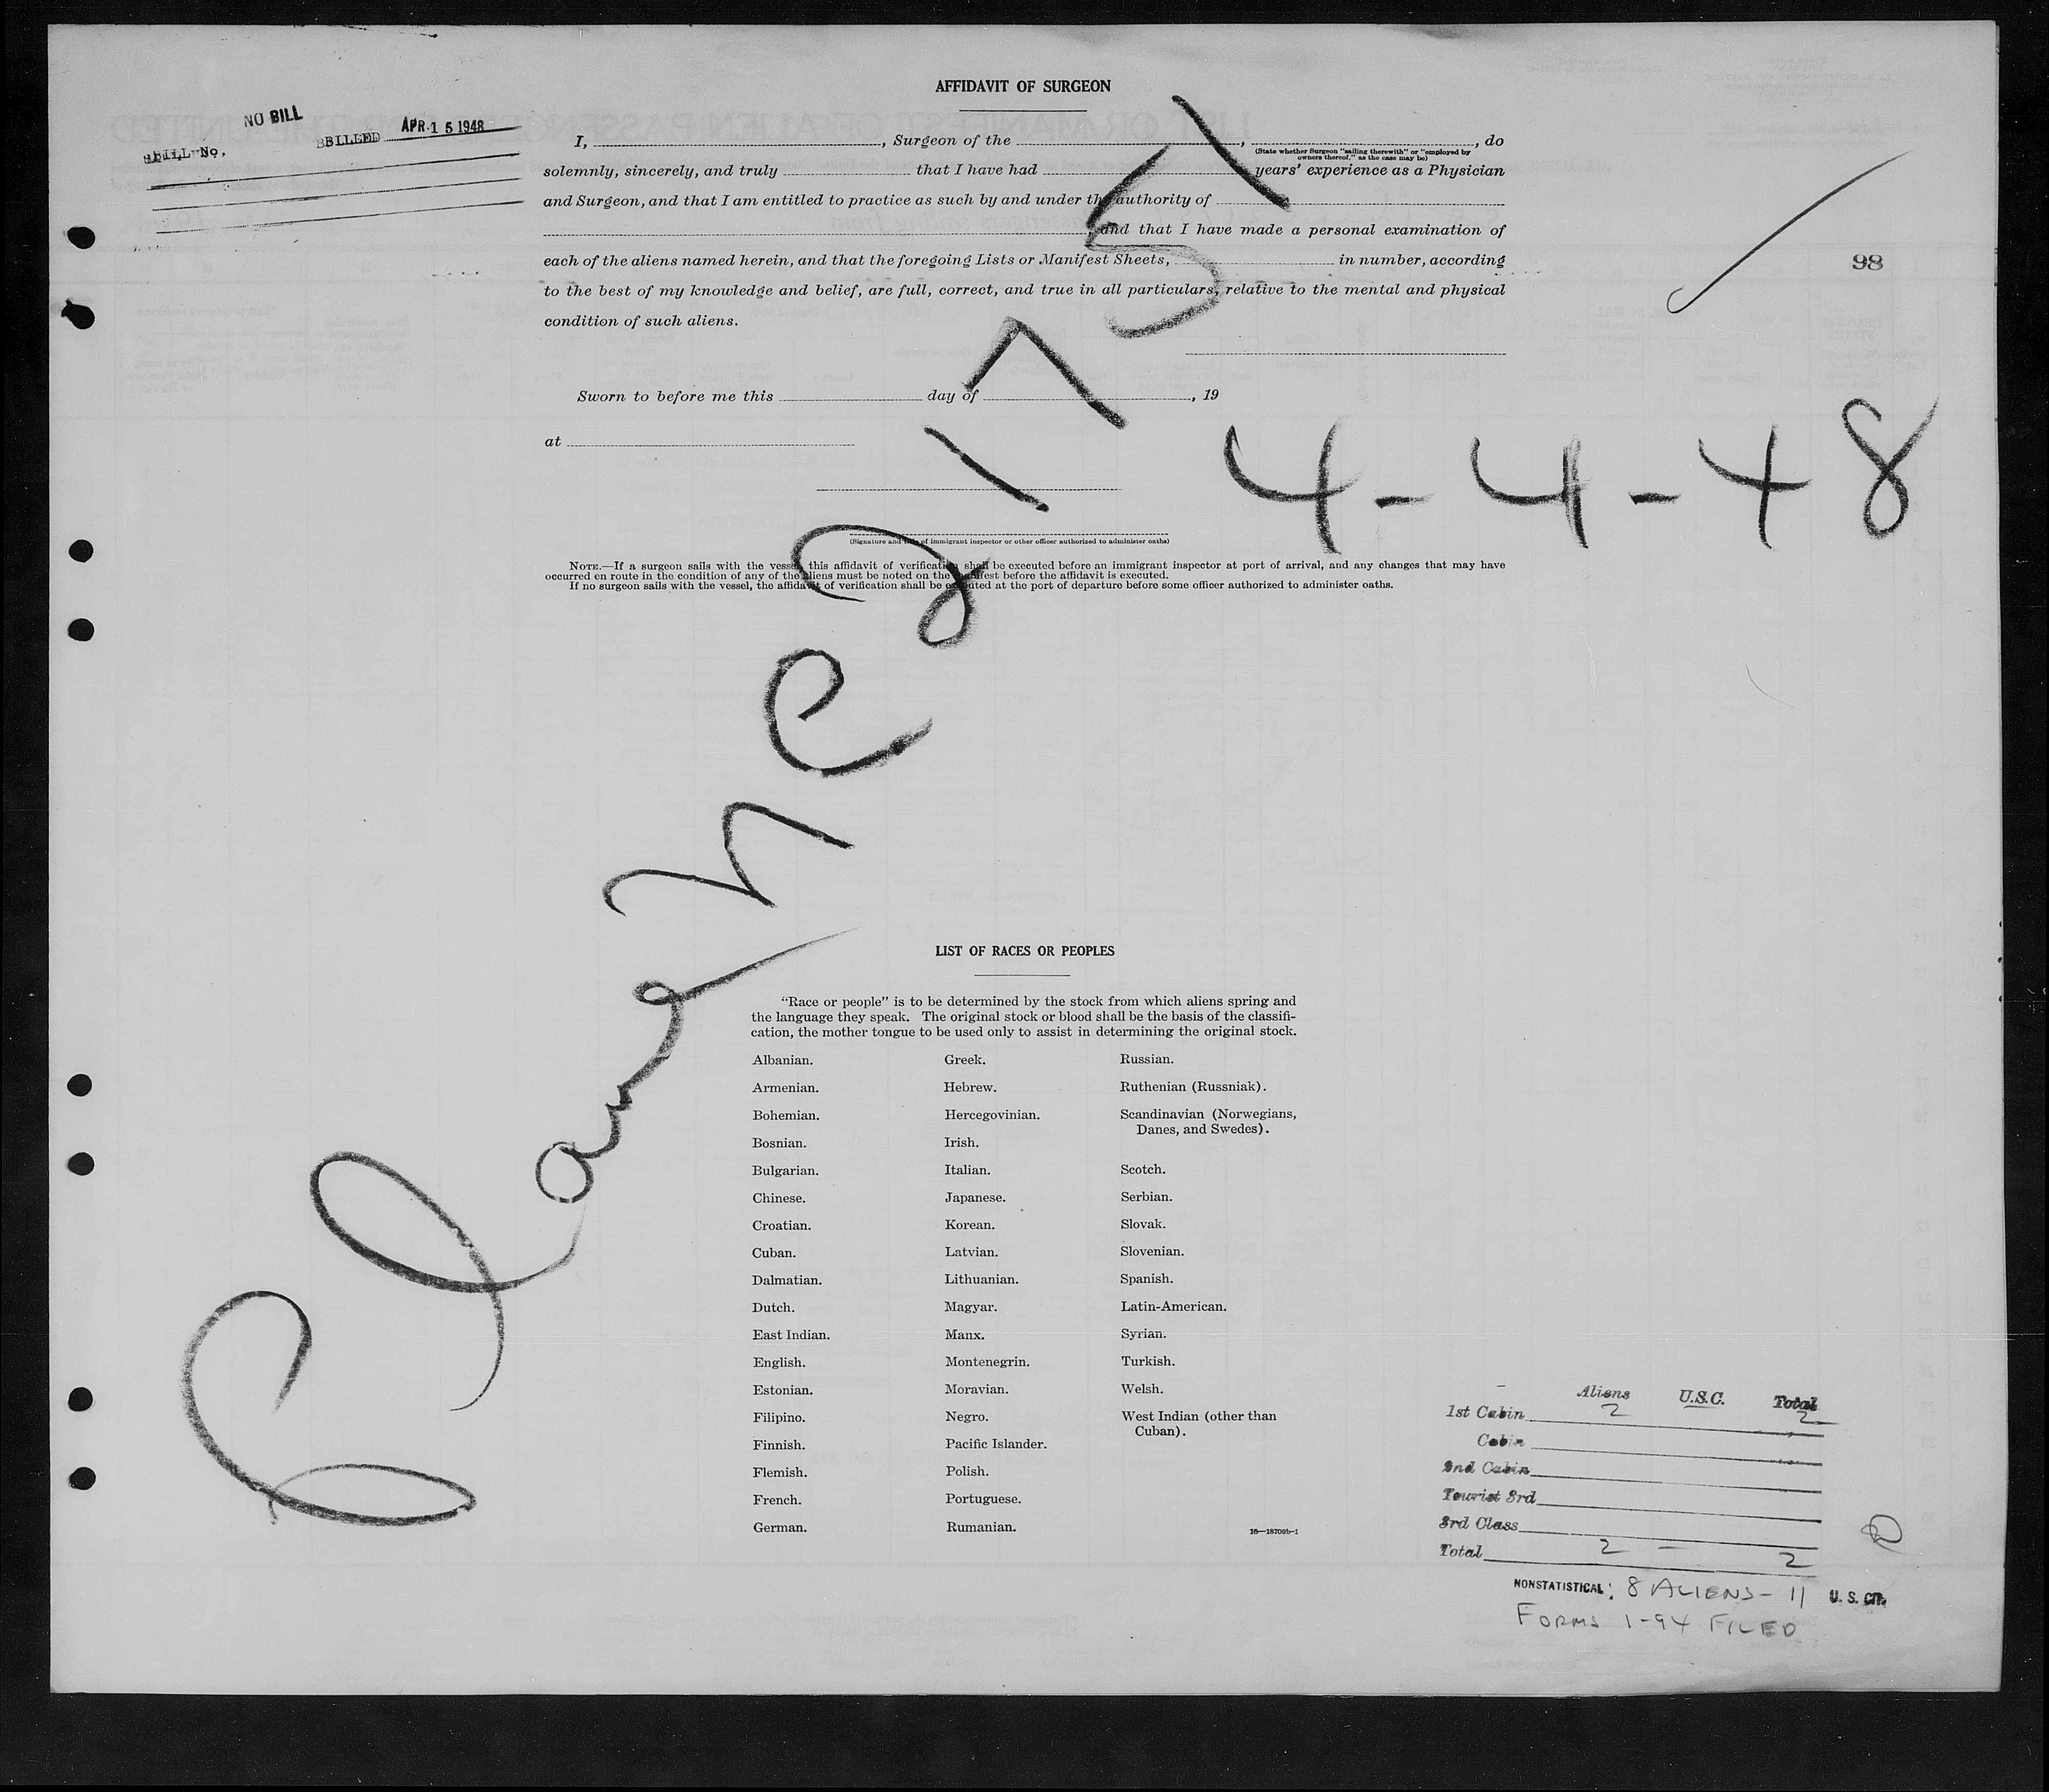 AFFIDAVIT OF SURGEON
NO BILL
BILLED APR 15 1948
BILL No.
I, , Surgeon of the , , do
(State whether Surgeon "sailing therewith" or "employed by owners thereof," as the case may be)
solemnly, sincerely, and truly that I have had years' experience as a Physician
and Surgeon, and that I am entitled to practice as such by and under the authority of
, and that I have made a personal examination of
each of the aliens named herein, and that the foregoing Lists or Manifest Sheets, in number, according
to the best of my knowledge and belief, are full, correct, and true in all particulars, relative to the mental and physical
condition of such aliens.
98
Sworn to before me this day of , 19
at
4-4-48
(Signature and title of immigrant inspector or other officer authorized to administer oaths)
NOTE.—If a surgeon sails with the vessel, this affidavit of verification shall be executed before an immigrant inspector at port of arrival, and any changes that may have
occurred en route in the condition of any of the aliens must be noted on the manifest before the affidavit is executed.
If no surgeon sails with the vessel, the affidavit of verification shall be executed at the port of departure before some officer authorized to administer oaths.
LIST OF RACES OR PEOPLES
"Race or people" is to be determined by the stock from which aliens spring and
the language they speak. The original stock or blood shall be the basis of the classifi-
cation, the mother tongue to be used only to assist in determining the original stock.
Albanian. Greek. Russian.
Armenian. Hebrew. Ruthenian (Russniak).
Bohemian. Hercegovinian. Scandinavian (Norwegians,
Danes, and Swedes).
Bosnian. Irish.
Bulgarian. Italian. Scotch.
Chinese. Japanese. Serbian.
Croatian. Korean. Slovak.
Cuban. Latvian. Slovenian.
Dalmatian. Lithuanian. Spanish.
Dutch. Magyar. Latin-American.
East Indian. Manx. Syrian.
English. Montenegrin. Turkish.
Estonian. Moravian. Welsh.
Filipino. Negro. West Indian (other than
Cuban).
Finnish. Pacific Islander.
Flemish. Polish.
French. Portuguese.
German. Rumanian.
16—18709b-1
Aliens U.S.C. Total
1st Cabin 2 2
Cabin
2nd Cabin
Tourist 3rd
3rd Class
Total 2 — 2
NONSTATISTICAL: 8 ALIENS - 11 U.S. CIT.
FORMS I-94 FILED